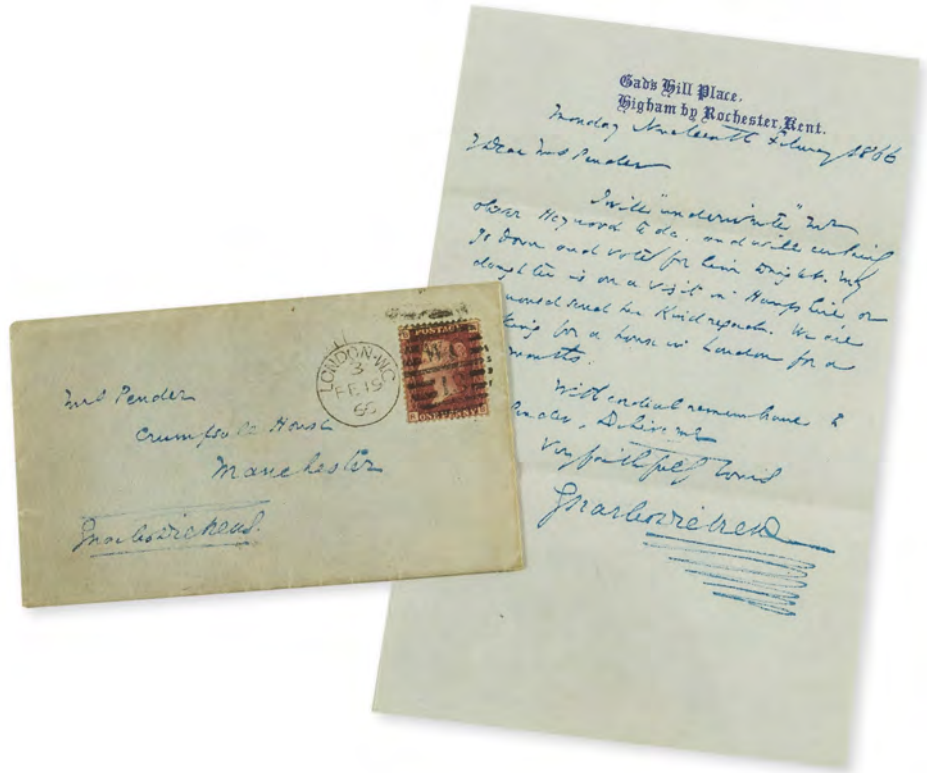 Gad's Hill Place,
Higham by Rochester, Kent.
Monday Nineteenth February 1866
My Dear Mrs Pender
I will "underwrite" Mr
Oliver Heywood and will certainly
go down and vote for him. My
daughter is on a visit in Hampshire or
would send her kind regards. We are
for a house in London for a
months.
With cordial remembrance to
Pender, Believe me
Very faithfully Yours
Charles Dickens
Mrs Pender
Crumpsall House
Manchester
Charles Dickens
LONDON·W.C
3
FE 19
66
POSTAGE
ONE PENNY